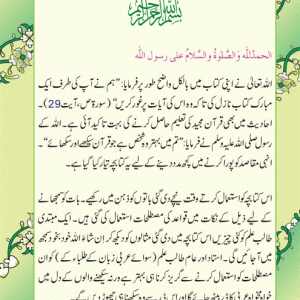 بسم الله الرحمن الرحيم
الحمدُللّٰه وَالصّلوةُ والسّلامُ علی رسول الله
اللہ تعالیٰ نے اپنی کتاب میں بالکل واضح طور پر فرمایا: ”ہم نے آپ کی طرف ایک
مبارک کتاب نازل کی تا کہ وہ اس کی آیات پر غور کریں“ (سورۃ ص، آیت 29)۔
احادیث میں بھی قرآن مجید کی تعلیم حاصل کرنے کی بہت تاکید آئی ہے۔ اللہ کے
رسول صلی اللہ علیہ وسلم نے فرمایا: ”تم میں بہتر وہ شخص ہے جو قرآن سیکھے اور سکھائے“۔
انہی مقاصد کو پورا کرنے میں کچھ مدد دینے کے لیے یہ کتابچہ تیار کیا گیا ہے۔
اس کتابچہ کو استعمال کرتے وقت نیچے دی گئی باتوں کو ذہن میں رکھیے۔ بات کو سمجھانے
کے لیے ذیل کے نکات میں قواعد کی مصطلحات استعمال کی گئی ہیں۔ ایک مبتدی
طالب علم کو کئی چیزیں اس کتابچہ میں دی گئی مثالوں کو دیکھ کر ان شاء اللہ خود بخود سمجھ
میں آجائیں گی۔ استاد اور عام طالب علم (سوائے عربی زبان کے طلباء کے) کو ان
مصطلحات کو استعمال کرنے سے گریز کرنا ہی بہتر ہے ورنہ سیکھنے والوں کے دل میں